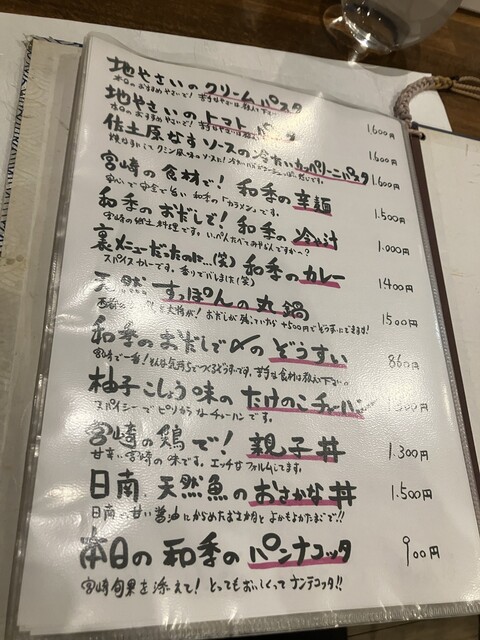 地やさいの クリームパスタ 1.600円
本日のおすすめやさいで!
地やさいの トマト パスタ 1.600円
本日のおすすめやさいで!
佐土原なす ソースの冷たいカッペリーニパスタ 1.600円
宮崎の食材で! 和季の辛麺 1.500円
安心で安全で旨い 和季の「カラメン」です。
和季のおだしで! 和季の 冷や汁 1.000円
宮崎の郷土料理です。いっぺんたべてみやんですか〜?
裏メニューだったのに…(笑) 和季のカレー 1400円
スパイスカレーです。香りでバレました(笑)
天然 すっぽんの丸鍋 1500円
おだしが残っていたら +500円でぞうすいできます!
和季のおだしで〆の ぞうすい 860円
柚子こしょう味の たけのこチャーハン
スパイシーでピリッとうなチャーハンです。
宮崎の鶏で! 親子丼 1.300円
甘辛い宮崎の味です。エッチなフォルムしてます。
日南、天然魚の おさかな丼 1.500円
日南の甘い醤油にからめたおさかなと よかもよかたまごで!!
本日の 和季の パンナコッタ 900円
宮崎旬果を添えて! とってもおいしくって ナンテコッタ!!